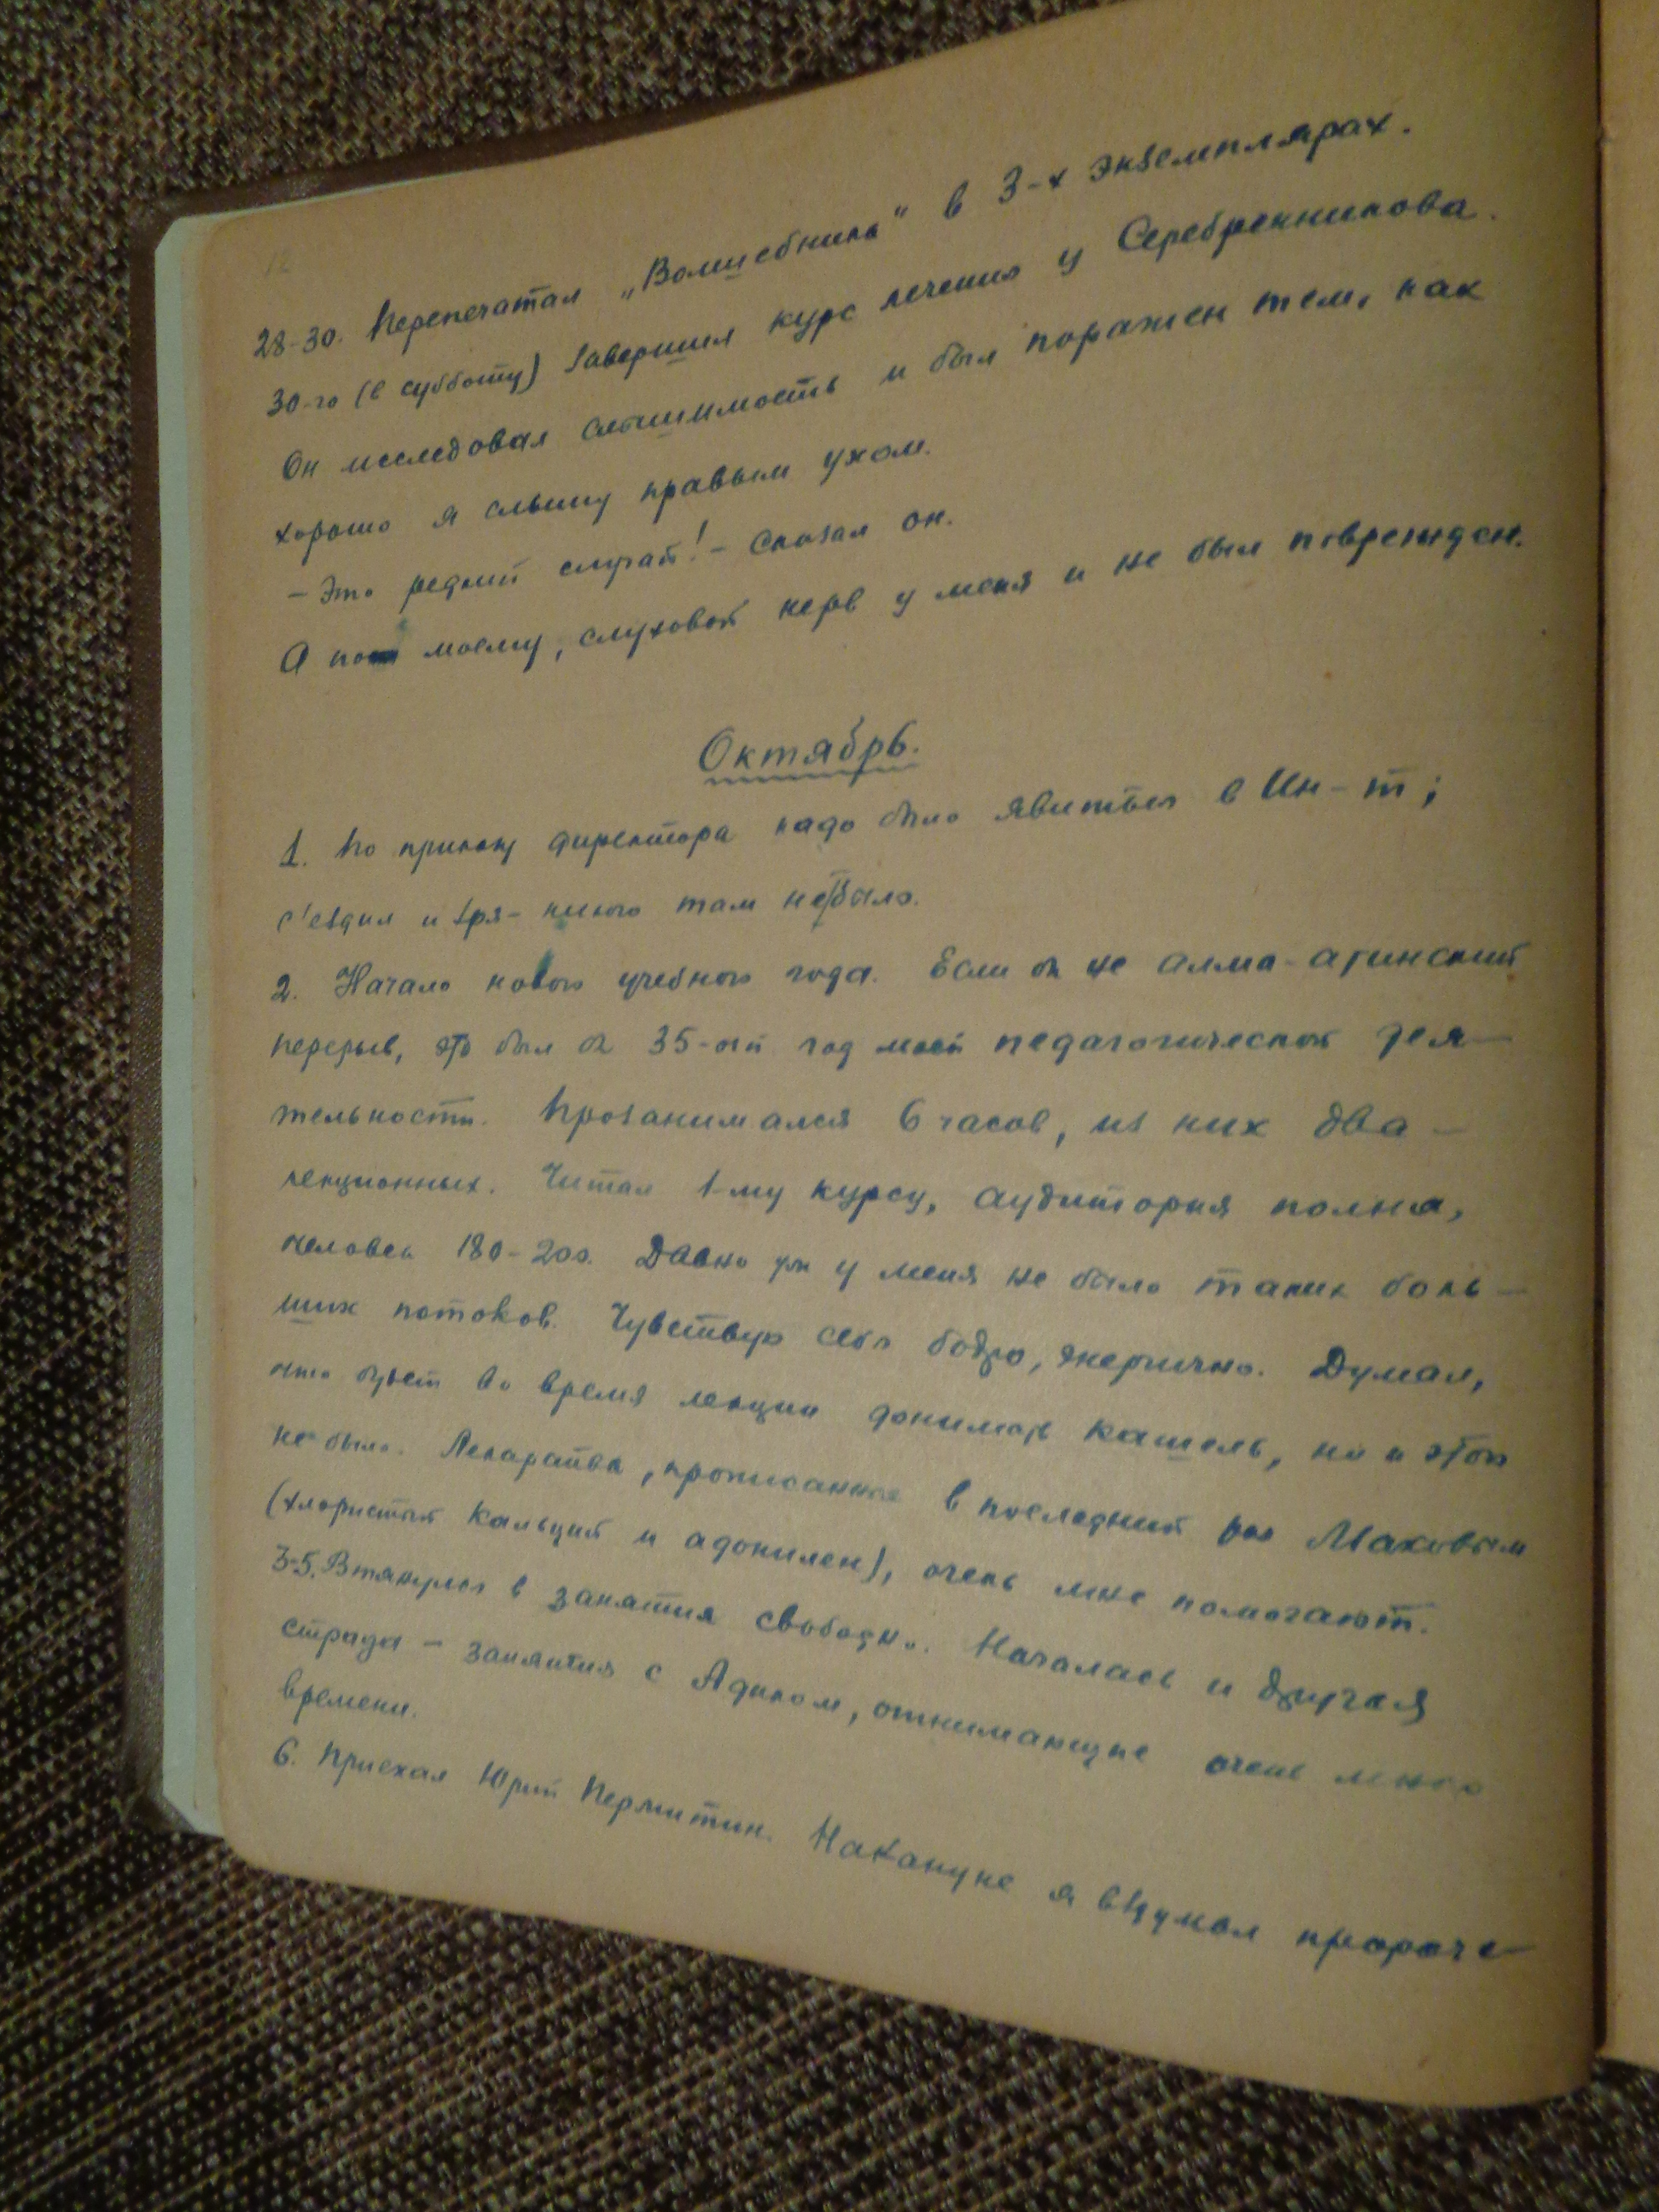 12
28-30. Перепечатал „Волшебника" в 3-х экземплярах.
30-го (в субботу) завершил курс лечения у Серебренникова.
Он исследовал слышимость и был поражен тем, как
хорошо я слышу правым ухом.
– Это редкий случай! – сказал он.
А по моему, слуховой нерв у меня и не был поврежден.
Октябрь.
1. По приказу директора надо было явиться в Ин-т;
с'ездил и зря – никого там не было.
2. Начало нового учебного года. Если бы не алма-атинский
перерыв, это был бы 35-ый год моей педагогической дея-
тельности. Прозанимался 6 часов, из них два –
лекционных. Читал 1-му курсу, аудитория полна,
человек 180-200. Давно уж у меня не было таких боль-
ших потоков. Чувствую себя бодро, энергично. Думал,
что будет во время лекции донимать кашель, но и этого
не было. Лекарства, прописанные в последний раз Маховым
(хлористый кальций и адонилен), очень мне помогают.
3-5. Втянулся в занятия свободно. Началась и другая
страда – занятия с Адиком, отнимающие очень много
времени.
6. Приехал Юрий Пермитин. Накануне я вздумал прораче-